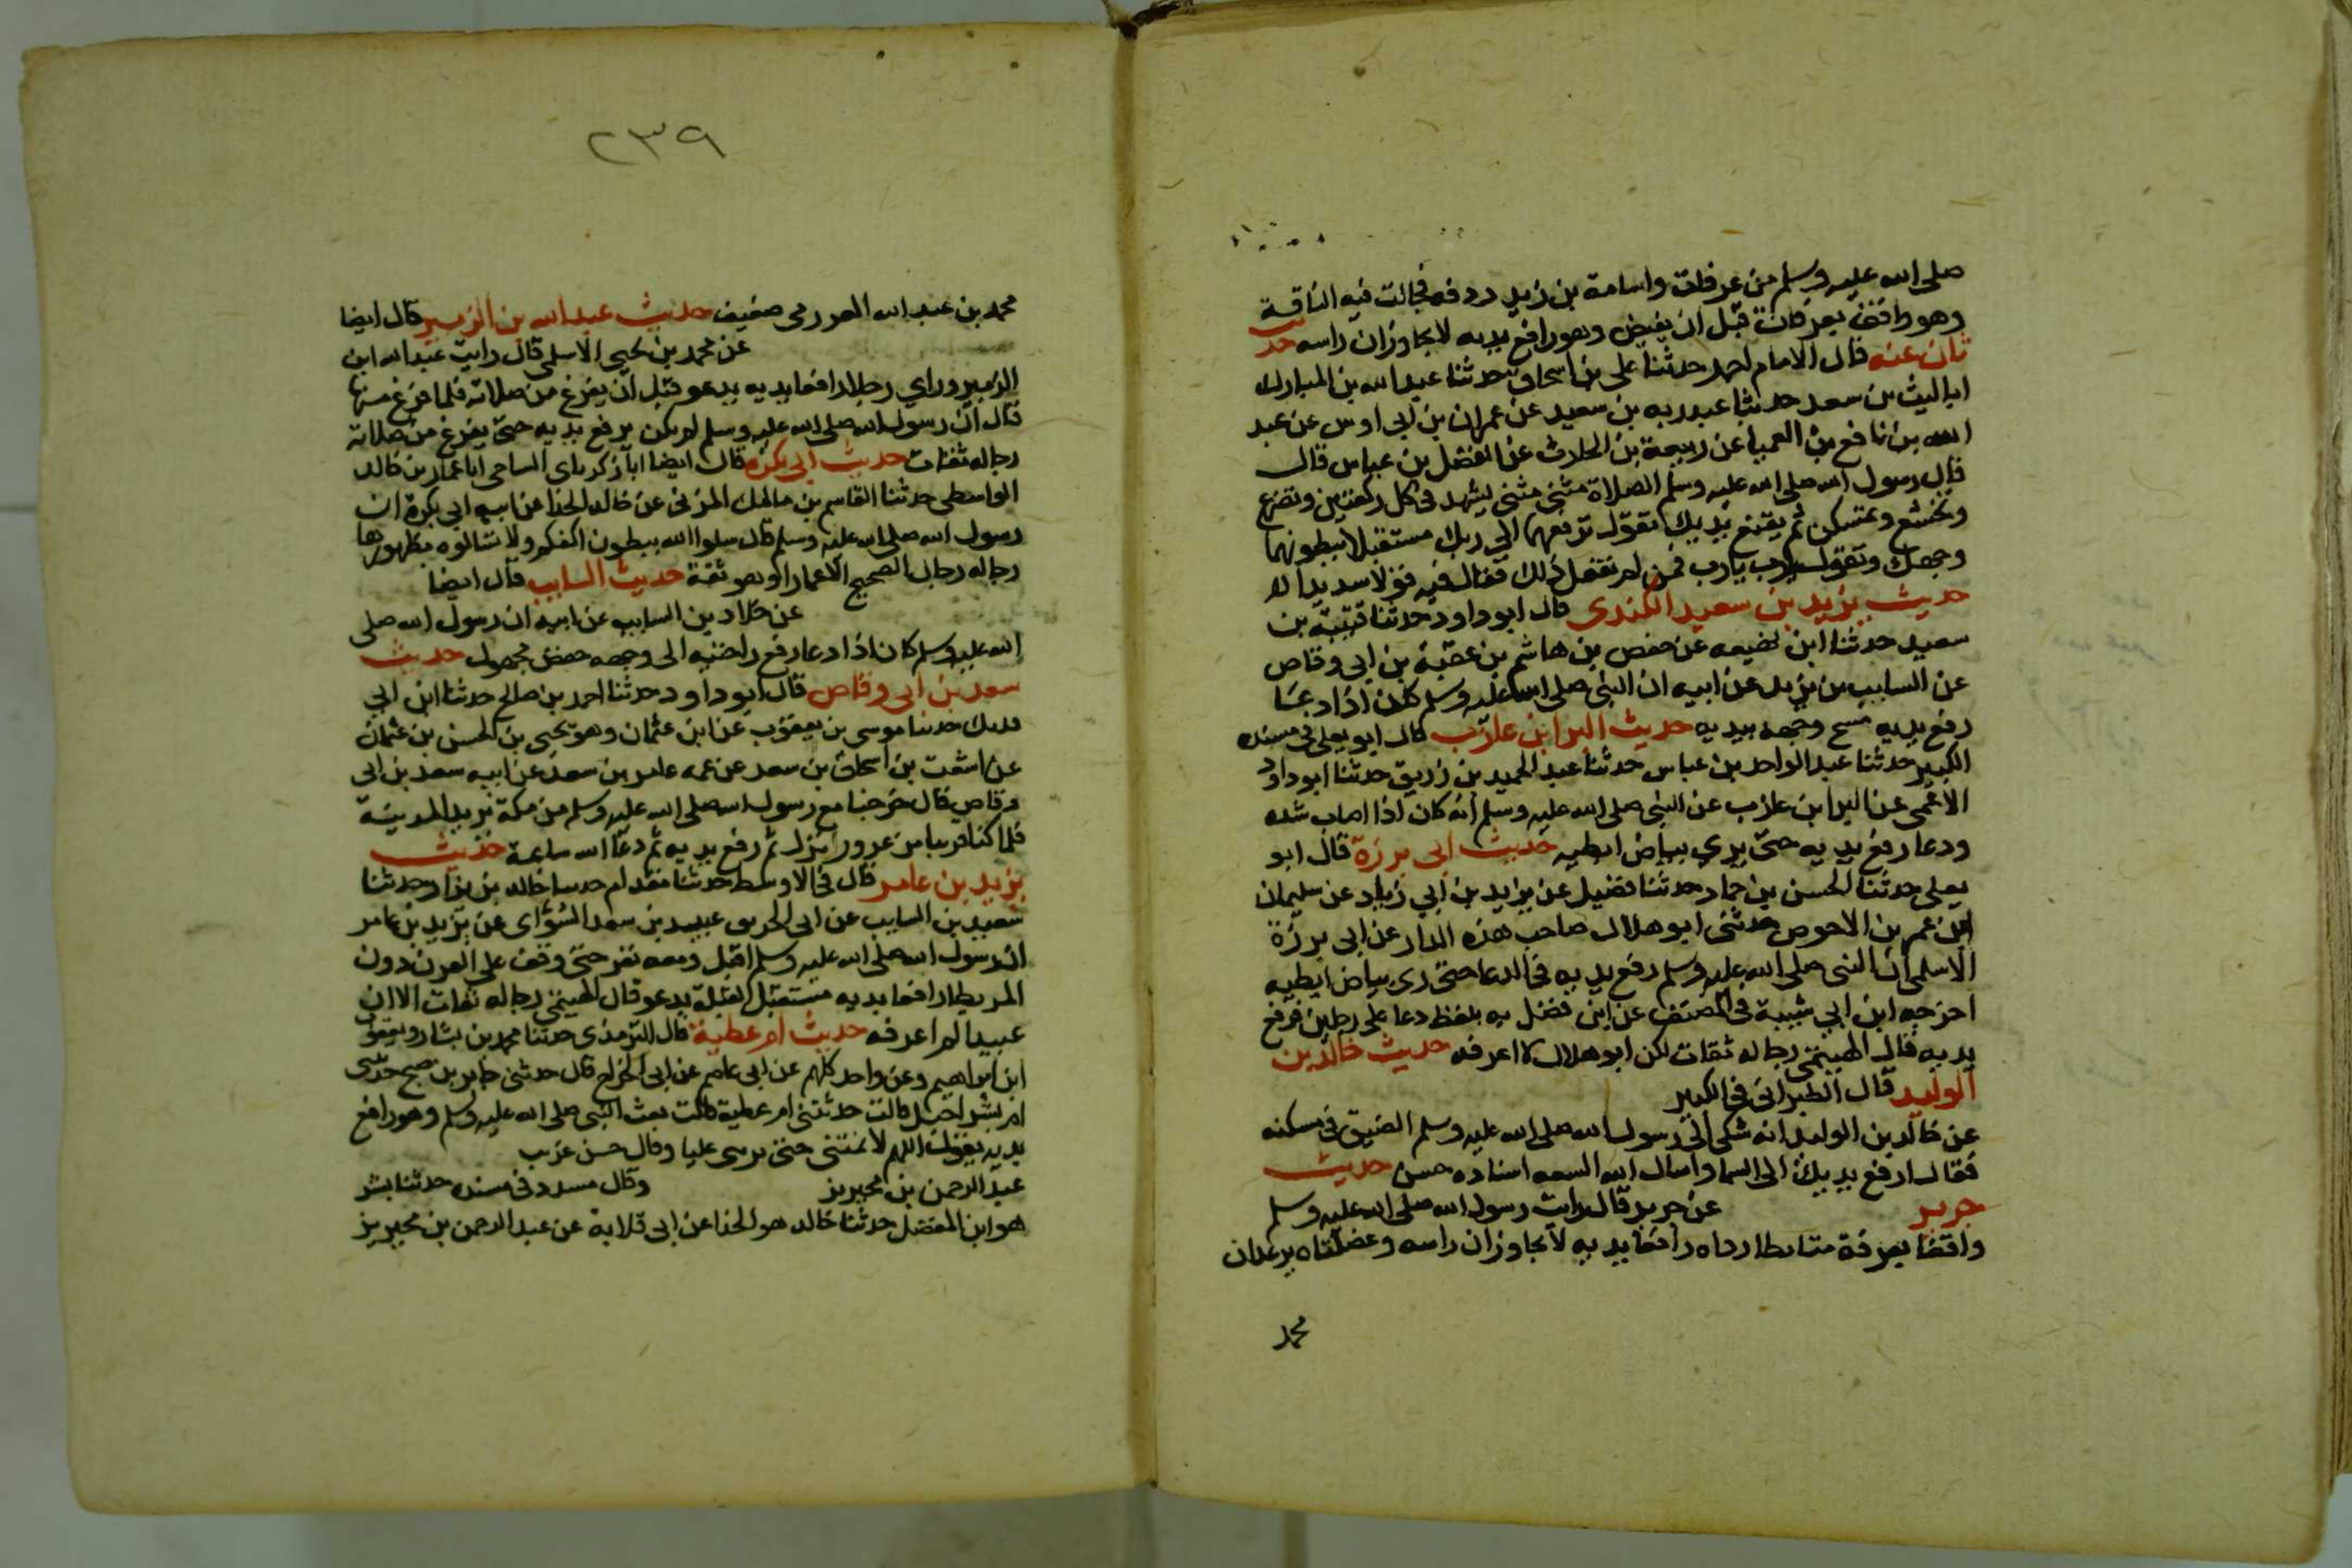 صلى الله عليه وسلم من عرفات واسامة بن زيد ردفه فجالت فيه الناقة
وهو واقف بعرفات قبل ان يفيض وهو رافع يديه لا يجاوزان راسه حديث
ثان عنه قال الامام احمد حدثنا علي بن اسحاق حدثنا عبد الله بن المبارك
ابا ليث بن سعد حدثنا عبد ربه بن سعيد عن عمران بن ابي اوس عن عبد
الله بن نافع بن العميا عن ربيعة بن الحارث عن الفضل بن عباس قال
قال رسول الله صلى الله عليه وسلم الصلاة مثنى مثنى تشهد في كل ركعتين وتضرع
وتخشع وتمسكن ثم يقنع يديك تقول ترفعهما الى ربك مستقبلا ببطونهما
وجهك وتقول يا رب يا رب فمن لم يفعل ذلك فقال فيه قولا سديدا له
حديث يزيد بن سعيد الكندي قال ابو داود حدثنا قتيبة بن
سعيد حدثنا ابن لهيعه عن حفص بن هاشم بن عقبة بن ابي وقاص
عن السايب بن يزيد عن ابيه ان النبي صلى الله عليه وسلم كان اذا دعا
رفع يديه مسح وجهه بيديه حديث البرا بن عازب قال ابو يعلى في مسنده
الكبير حدثنا عبد الواحد بن عباس حدثنا عبد الحميد بن زريق حدثنا ابو داود
الاعمى عن البرا بن عازب عن النبي صلى الله عليه وسلم انه كان اذا اصاب شده
ودعا رفع يديه حتى يرى بياض ابطيه حديث ابي برزة قال ابو
يعلى حدثنا الحسن بن حماد حدثنا فضيل عن يزيد بن ابي زياد عن سليمان
ابن عمر بن الاحوص حدثني ابو هلال صاحب هذه الدار عن ابي برزة
الاسلمي ان النبي صلى الله عليه وسلم رفع يديه في الدعا حتى رى بياض ابطيه
اخرجه ابن ابي شيبة في المصنف عن ابن فضل به بلفظ دعا على رجلين فرفع
يديه قال الهيثمي رجاله ثقات لكن ابو هلال لا اعرفه حديث خالد بن
الوليد قال الطبراني في الكبير
عن خالد بن الوليد انه شكى الى رسول الله صلى الله عليه وسلم الضيق في مسكنه
فقال ارفع يديك الى السما واسال الله السعه اسناده حسن حديث
جرير عن جرير قال رايت رسول الله صلى الله عليه وسلم
واقفا بعرفة متابطا رداه رافعا يديه لا يجاوزان راسه وعضلتاه يرعدان
محمد
٢٣٩
محمد بن عبد الله العرزمي ضعيف حديث عبد الله بن الزبير قال ايضا
عن محمد بن يحيى الاسلمي قال رايت عبد الله ابن
الزبير وراي رجلا رافعا يديه يدعو قبل ان يفرغ من صلاته فلما فرغ منها
قال ان رسول الله صلى الله عليه وسلم لم يكن يرفع يديه حتى يفرغ من صلاته
رجاله ثقات حديث ابي بكرة قال ايضا ابا زكرياى الساجي ابا عمار بن خالد
الواسطي حدثنا القاسم بن مالك المزني عن خالد الحذا عن ابيه ابي بكرة ان
رسول الله صلى الله عليه وسلم قال سلوا الله ببطون اكفكم ولا تسالوه بظهورها
رجاله رجال الصحيح الا عمارا وهو ثقة حديث السايب قال ايضا
عن خلاد بن السايب عن ابيه ان رسول الله صلى
الله عليه وسلم كان اذا دعا رفع راحتيه الى وجهه حفص مجهول حديث
سعد بن ابي وقاص قال ابو داود حدثنا احمد بن صالح حدثنا ابن ابي
فديك حدثنا موسى بن يعقوب عن ابن عثمان وهو يحيى بن الحسن بن عثمان
عن اشعث بن اسحاق بن سعد عن عمه عامر بن سعد عن ابيه سعد بن ابي
وقاص قال خرجنا مع رسول الله صلى الله عليه وسلم من مكة نريد المدينة
فلما كنا قريبا من عزور نزل ثم رفع يديه ثم دعا الله ساعة حديث
يزيد بن عامر قال في الاوسط حدثنا مقدام حدثنا خالد بن نزار حدثنا
سعيد بن السايب عن ابي عبيد بن سعد السواي عن يزيد بن عامر
ان رسول الله صلى الله عليه وسلم اقبل ومعه نفر حتى وقف على القرن دون
المريطا رافعا يديه مستقبل القبلة يدعو قال الهيثمي رجاله ثقات الا ان
عبيدا لم اعرفه حديث ام عطية قال الترمذي حدثنا محمد بن بشار ويعقوب
ابن ابراهيم وغير واحد كلهم عن ابي عاصم عن ابي الجراح قال حدثني جابر بن صبح حدثتني
ام شراحيل قالت حدثتني ام عطية قالت بعث النبي صلى الله عليه وسلم وهو رافع
يديه يقول اللهم لا تمتني حتى تريني عليا وقال حسن غريب
عبد الرحمن بن محيريز وقال مسدد في مسنده حدثنا بشر
هو ابن المفضل حدثنا خالد هو الحذا عن ابي قلابة عن عبد الرحمن بن محيريز